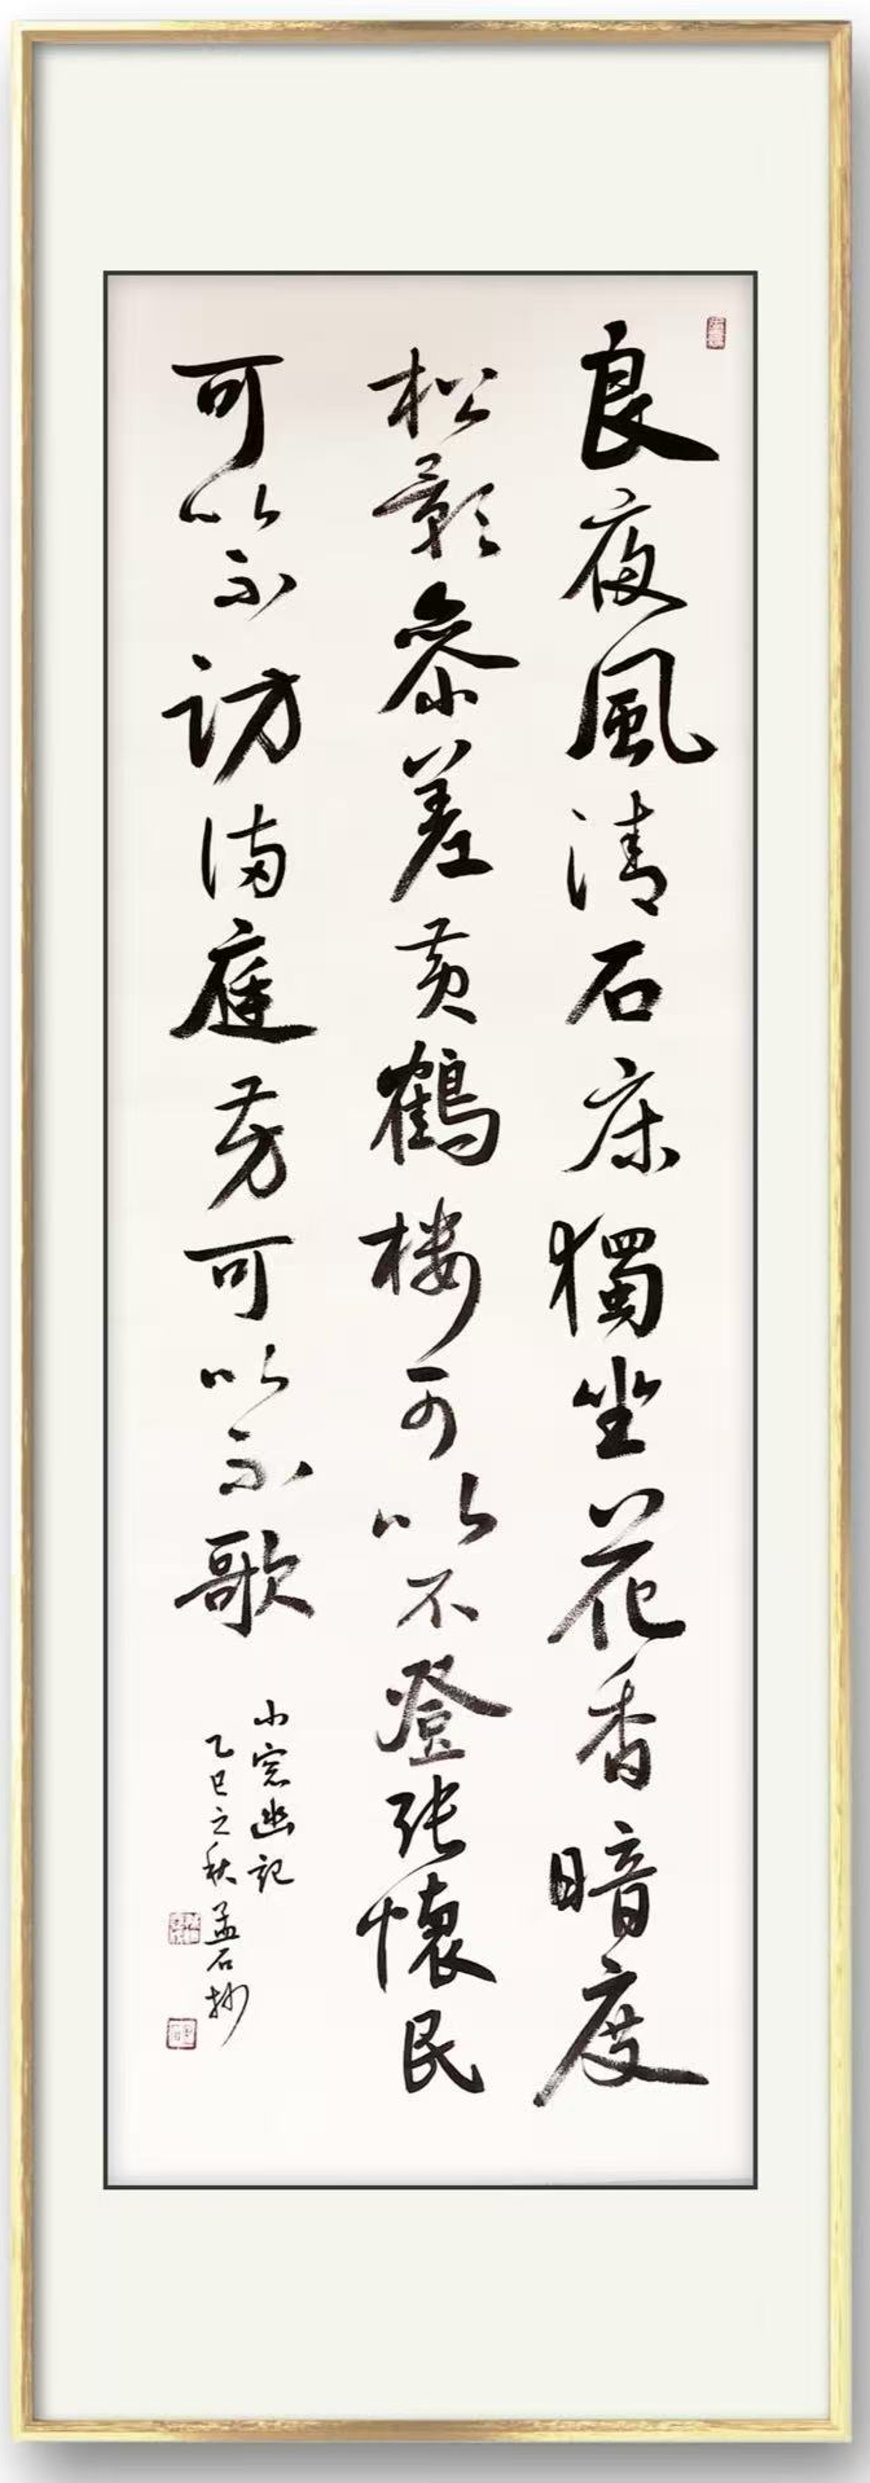 良夜風清石床獨坐花香暗度
松影參差黃鶴樓可以不登张懷民
可以不访满庭芳可以不歌
小窓幽記
乙巳之秋孟石抄